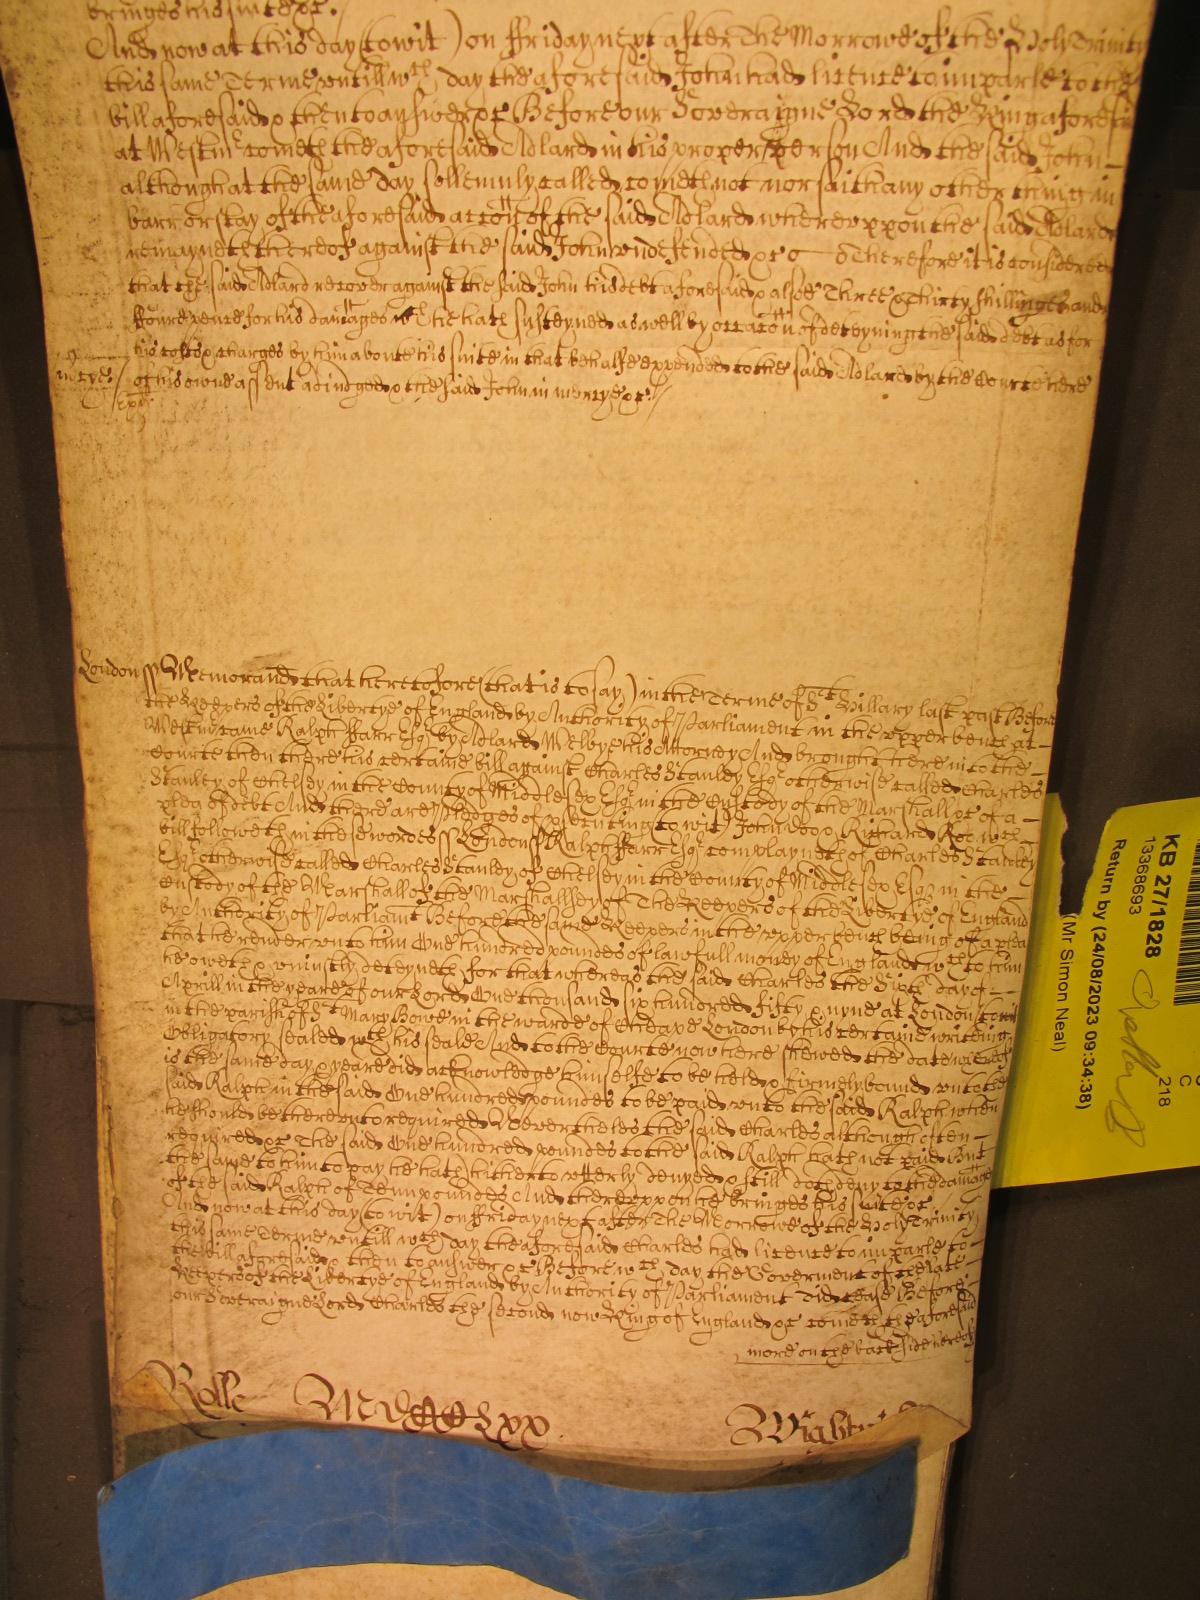 bringes his suite &c.
And now at this day (to wit) on ffriday next after The Morrowe of the Holy Trinity
this same Terme untill wch day the aforesaid John had licence to imparle to the
bill aforesaid & then to answer &c Before our Soveraigne Lord the King aforesaid
at Westmr cometh the aforesaid Adlard in his proper person And the said John
although at the same day sollemnly called cometh not nor saith any other thing in
barr or stay of the aforesaid accon of the said Adlard whereuppon the said Adlard
remayneth thereof against the said John undefended &c Therefore it is considered
that the said Adlard recover against the said John his debt aforesaid & alsoe Three & Thirty shillinges and
ffoure pence for his damages wch he hath susteyned as well by occacon of deteyning the said debt as for
his costs & charges by him about his suite in that behalfe expended to the said Adlard by the Courte here
of his owne assent adiudged & the said John in mercye &c.
mcye
London ss Memorand that heretofore (that is to say) in the Terme of St Hillary last past Before
the Keepers of the Libertye of England by Authority of Parliament in the upper bench at
Westmr came Ralph ffarr Esqr by Adlard Welbye his Attorney And brought here into the
Courte then there his certaine bill against Charles Stanley Esqr otherwise called Charles
Stanley of Chelsey in the County of Middlesex Esqr in the Custody of the Marshall &c of a
plea of debt And there are Pledges of prosecuting to wit John Doo & Richard Roo wch
bill followeth in these wordes ss London ss Ralph ffarr Esqr complayneth of Charles Stanley
Esqr otherwise called Charles Stanley of Chelsey in the County of Middlesex Esqr in the
Custody of the Marshall of the Marshallsey of The Keepers of the Libertye of England
by Authority of Parliamt Before the same Keepers in the upper bench being of a plea
that he render unto him One hundred poundes of lawfull money of England wch to him
he oweth & uniustly deteyneth for that whereas the said Charles the Sixth day of
Aprill in the yeare of our Lord One thousand six hundred fifty & nyne at London to wit
in the parish of St Mary Bowe in the warde of Cheape London by his certaine writing
Obligatory sealed wth his seale And to the Courte now here shewed the date whereof
is the same day & yeare did acknowledge himselfe to be held & firmely bound unto the
said Ralph in the said One hundred poundes to be paid unto the said Ralph when
he should be thereunto required Neverthelesse the said Charles although often
required &c The said One hundred poundes to the said Ralph hath not paid But
the same to him to pay he hath hitherto utterly denyed & still doth deny to the damage
of the said Ralph of Tenn poundes And thereuppon he bringes his suite &c
And now at this day (to wit) on ffriday next after The Morrowe of the Holy Trinity
this same Terme untill wch day the aforesaid Charles had licence to imparle to
the bill aforesaid & then to answer &c Before wch day the Goverment of the late
Keepers of the Libertye of England by Authority of Parliament did cease Before
our Soveraigne Lord Charles the second now King of England &c cometh the aforesaid
more on the back side hereof
Rolle MDCCLxx Wightw
KB 27/1828
13368693
Return by (24/08/2023 09:34:38)
(Mr Simon Neal)
218
C